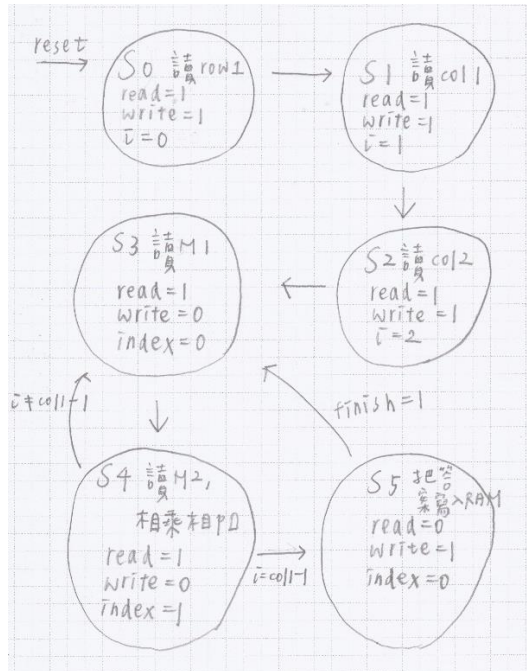 reset
S0 讀row1
read=1
write=1
i=0
S1 讀col1
read=1
write=1
i=1
S2讀col2
read=1
write=1
i=2
S3 讀M1
read=1
write=0
index=0
i≠col1-1
finish=1
S4 讀M2,
相乘相加
read=1
write=0
index=1
i=col1-1
S5 把答
案寫入RAM
read=0
write=1
index=0